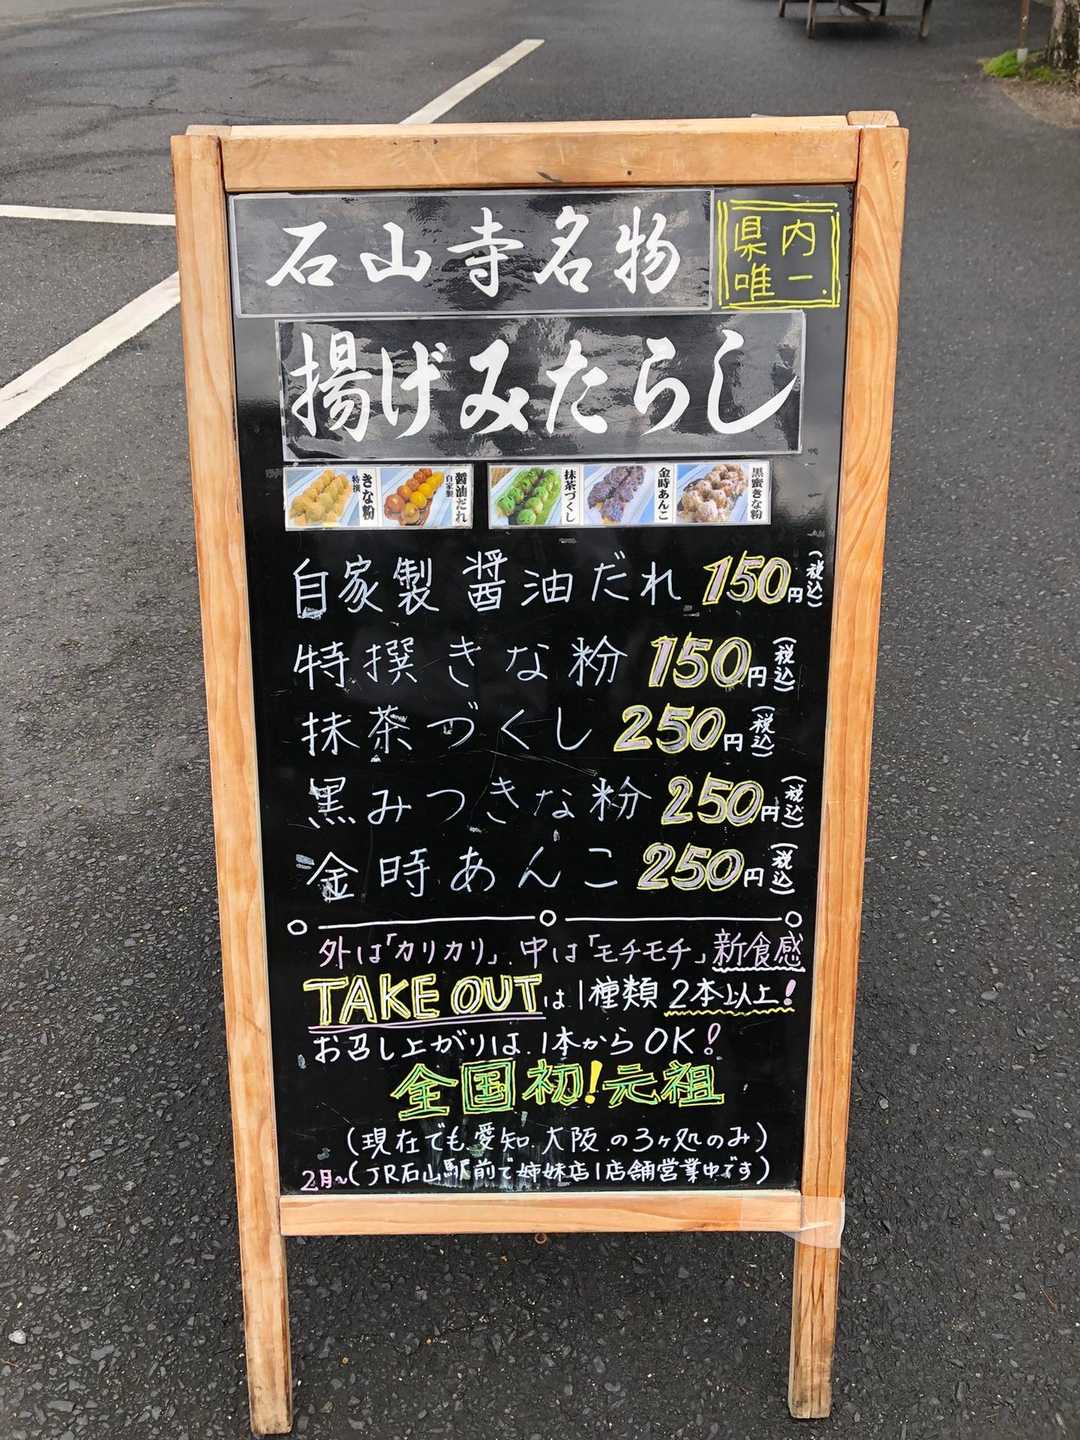 石山寺名物
県内
唯一
揚げみたらし
特撰 きな粉
自家製 醤油だれ
抹茶づくし
金時あんこ
黒蜜きな粉
自家製 醤油だれ 150円(税込)
特撰きな粉 150円(税込)
抹茶づくし 250円(税込)
黒みつきな粉 250円(税込)
金時あんこ 250円(税込)
外は「カリカリ」、中は「モチモチ」新食感
TAKE OUTは1種類2本以上!
お召し上がりは、1本からOK!
全国初!元祖
(現在でも愛知.大阪.の3ヶ処のみ)
2月~(JR石山駅前で姉妹店1店舗営業中です)